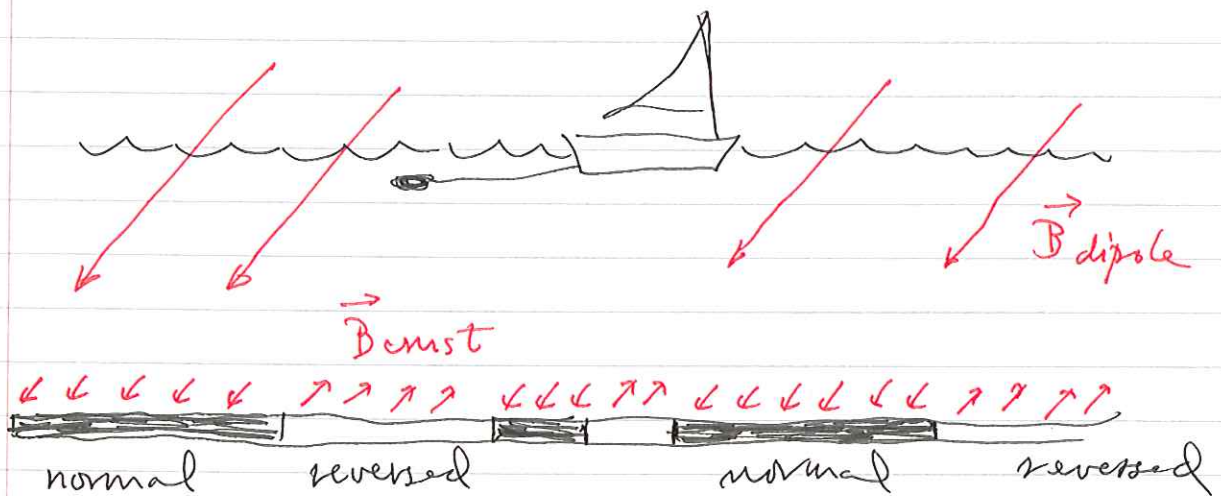 B dipole
B crust
normal reversed normal reversed